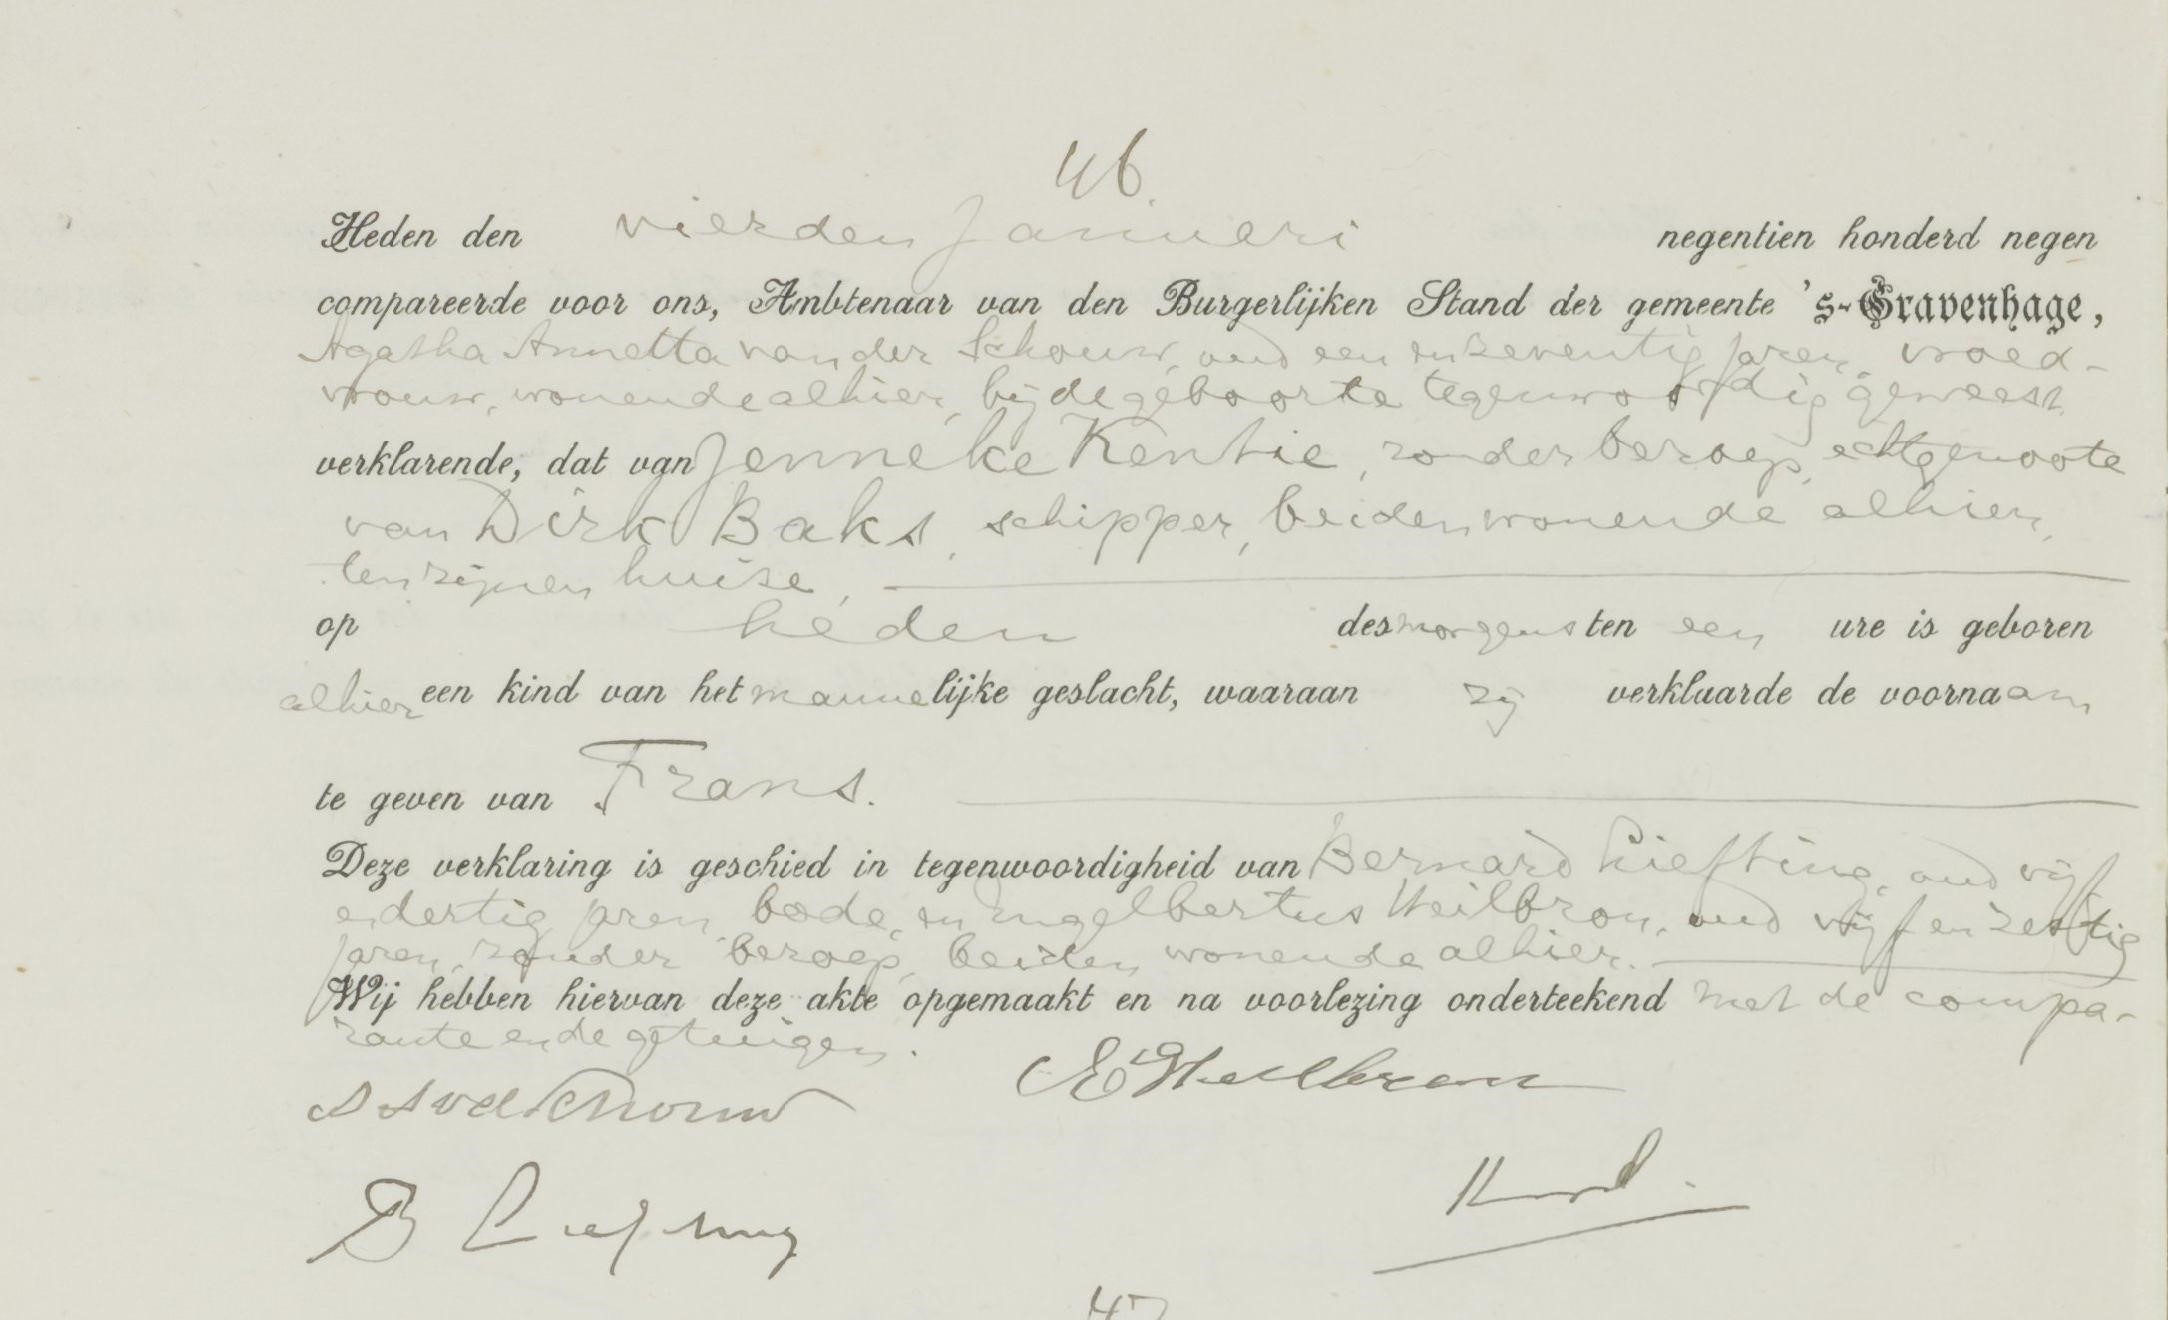 46.
Heden den vierden Januari negentien honderd negen
compareerde voor ons, Ambtenaar van den Burgerlijken Stand der gemeente 's-Gravenhage,
Agatha Annetta van der Schouw, oud een en zeventig jaren, vroed-
vrouw, wonende alhier, bij de geboorte tegenwoordig geweest,
verklarende, dat van Jenneke Kentie, zonder beroep, echtgenoote
van Dirk Baks, schipper, beiden wonende alhier,
ten zijnen huize,
op heden des morgens ten een ure is geboren
alhier een kind van het mannelijke geslacht, waaraan zij verklaarde de voornaam
te geven van Frans.
Deze verklaring is geschied in tegenwoordigheid van Bernard Liefting, oud vijf
en dertig jaren, bode, en Engelbertus Heilbron, oud vijf en zestig
jaren, zonder beroep, beiden wonende alhier.
Wij hebben hiervan deze akte opgemaakt en na voorlezing onderteekend met de compa-
rante en de getuigen.
A A vd Schouw E Heilbron
B Liefting
47